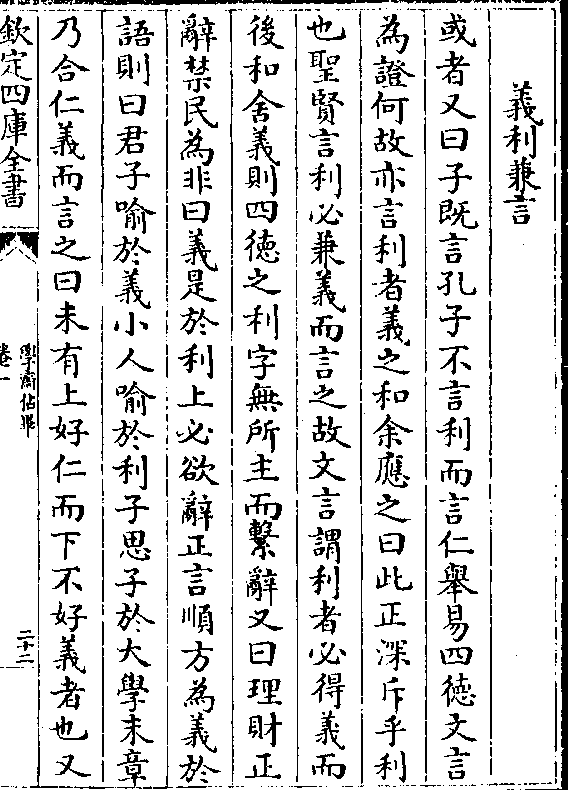 義利兼言
或者又曰子既言孔子不言利而言仁舉易四德文言
為證何故亦言利者義之和余應之曰此正深斥乎利
也聖賢言利必兼義而言之故文言謂利者必得義而
後和舍義則四徳之利字無所主而繫辭又曰理財正
辭禁民為非曰義是於利上必欲辭正言順方為義於
語則曰君子喻於義小人喻於利子思子於大學末章
乃合仁義而言之曰未有上好仁而下不好義者也又
欽定四庫全書
學齋佔畢
卷一
二十二